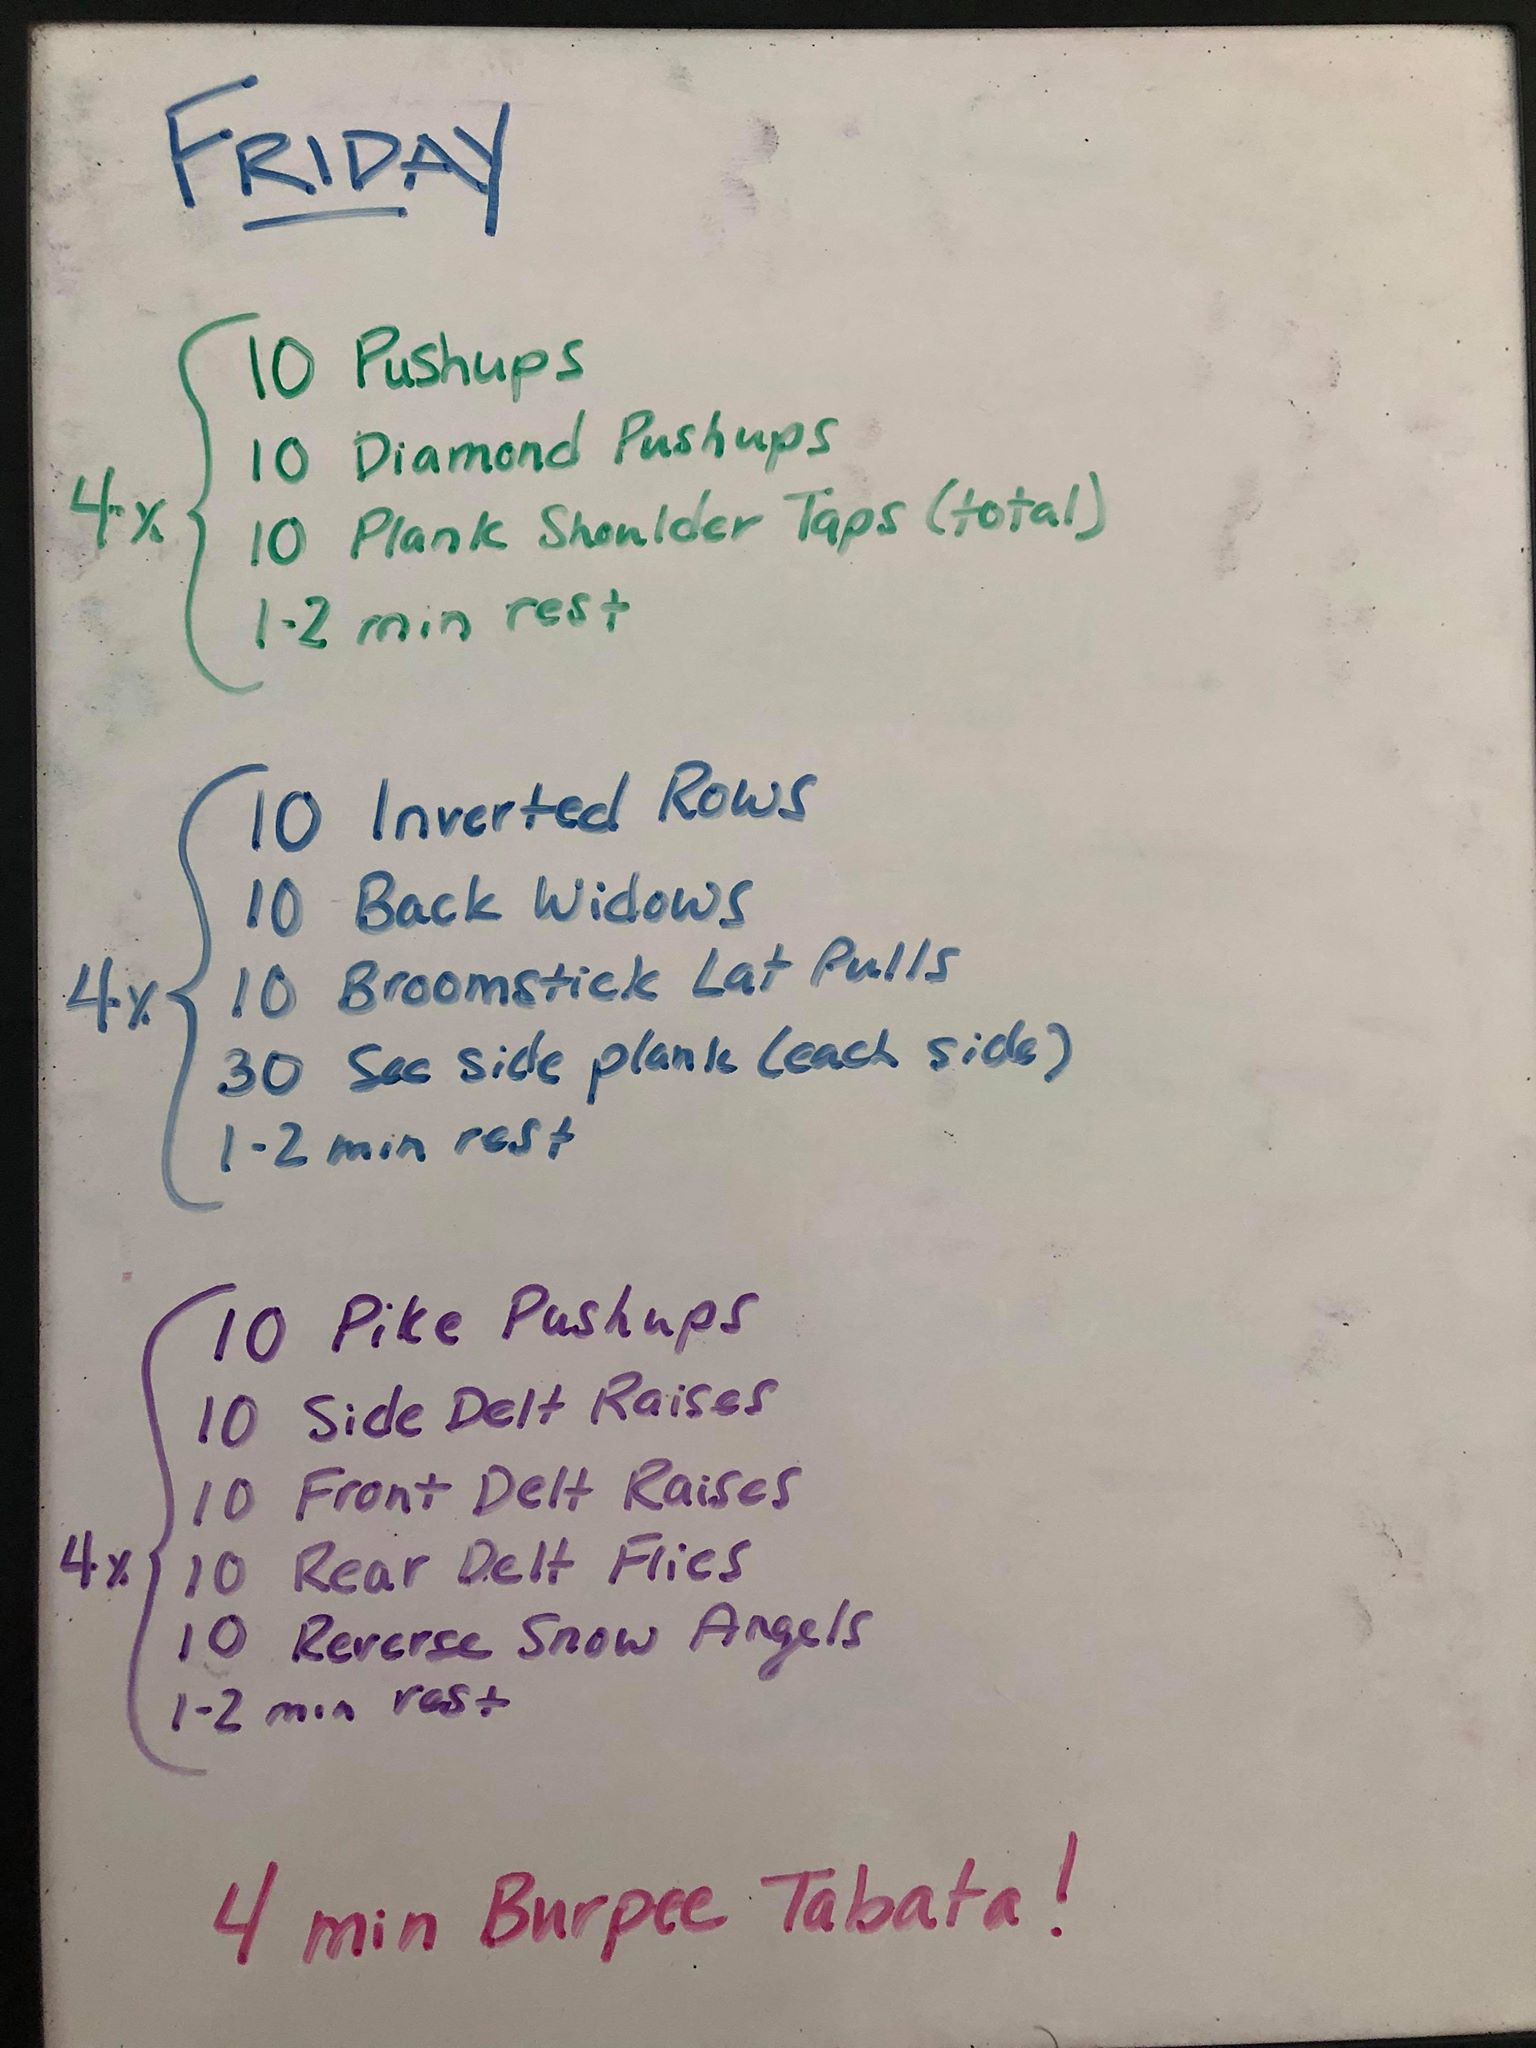 FRIDAY
10 Pushups
10 Diamond Pushups
4x
10 Plank Shoulder Taps (total)
1-2 min rest
10 Inverted Rows
10 Back Widows
4x
10 Broomstick Lat Pulls
30 Sec side plank (each side)
1-2 min rest
10 Pike Pushups
10 Side Delt Raises
10 Front Delt Raises
4x
10 Rear Delt Flies
10 Reverse Snow Angels
1-2 min rest
4 min Burpee Tabata!